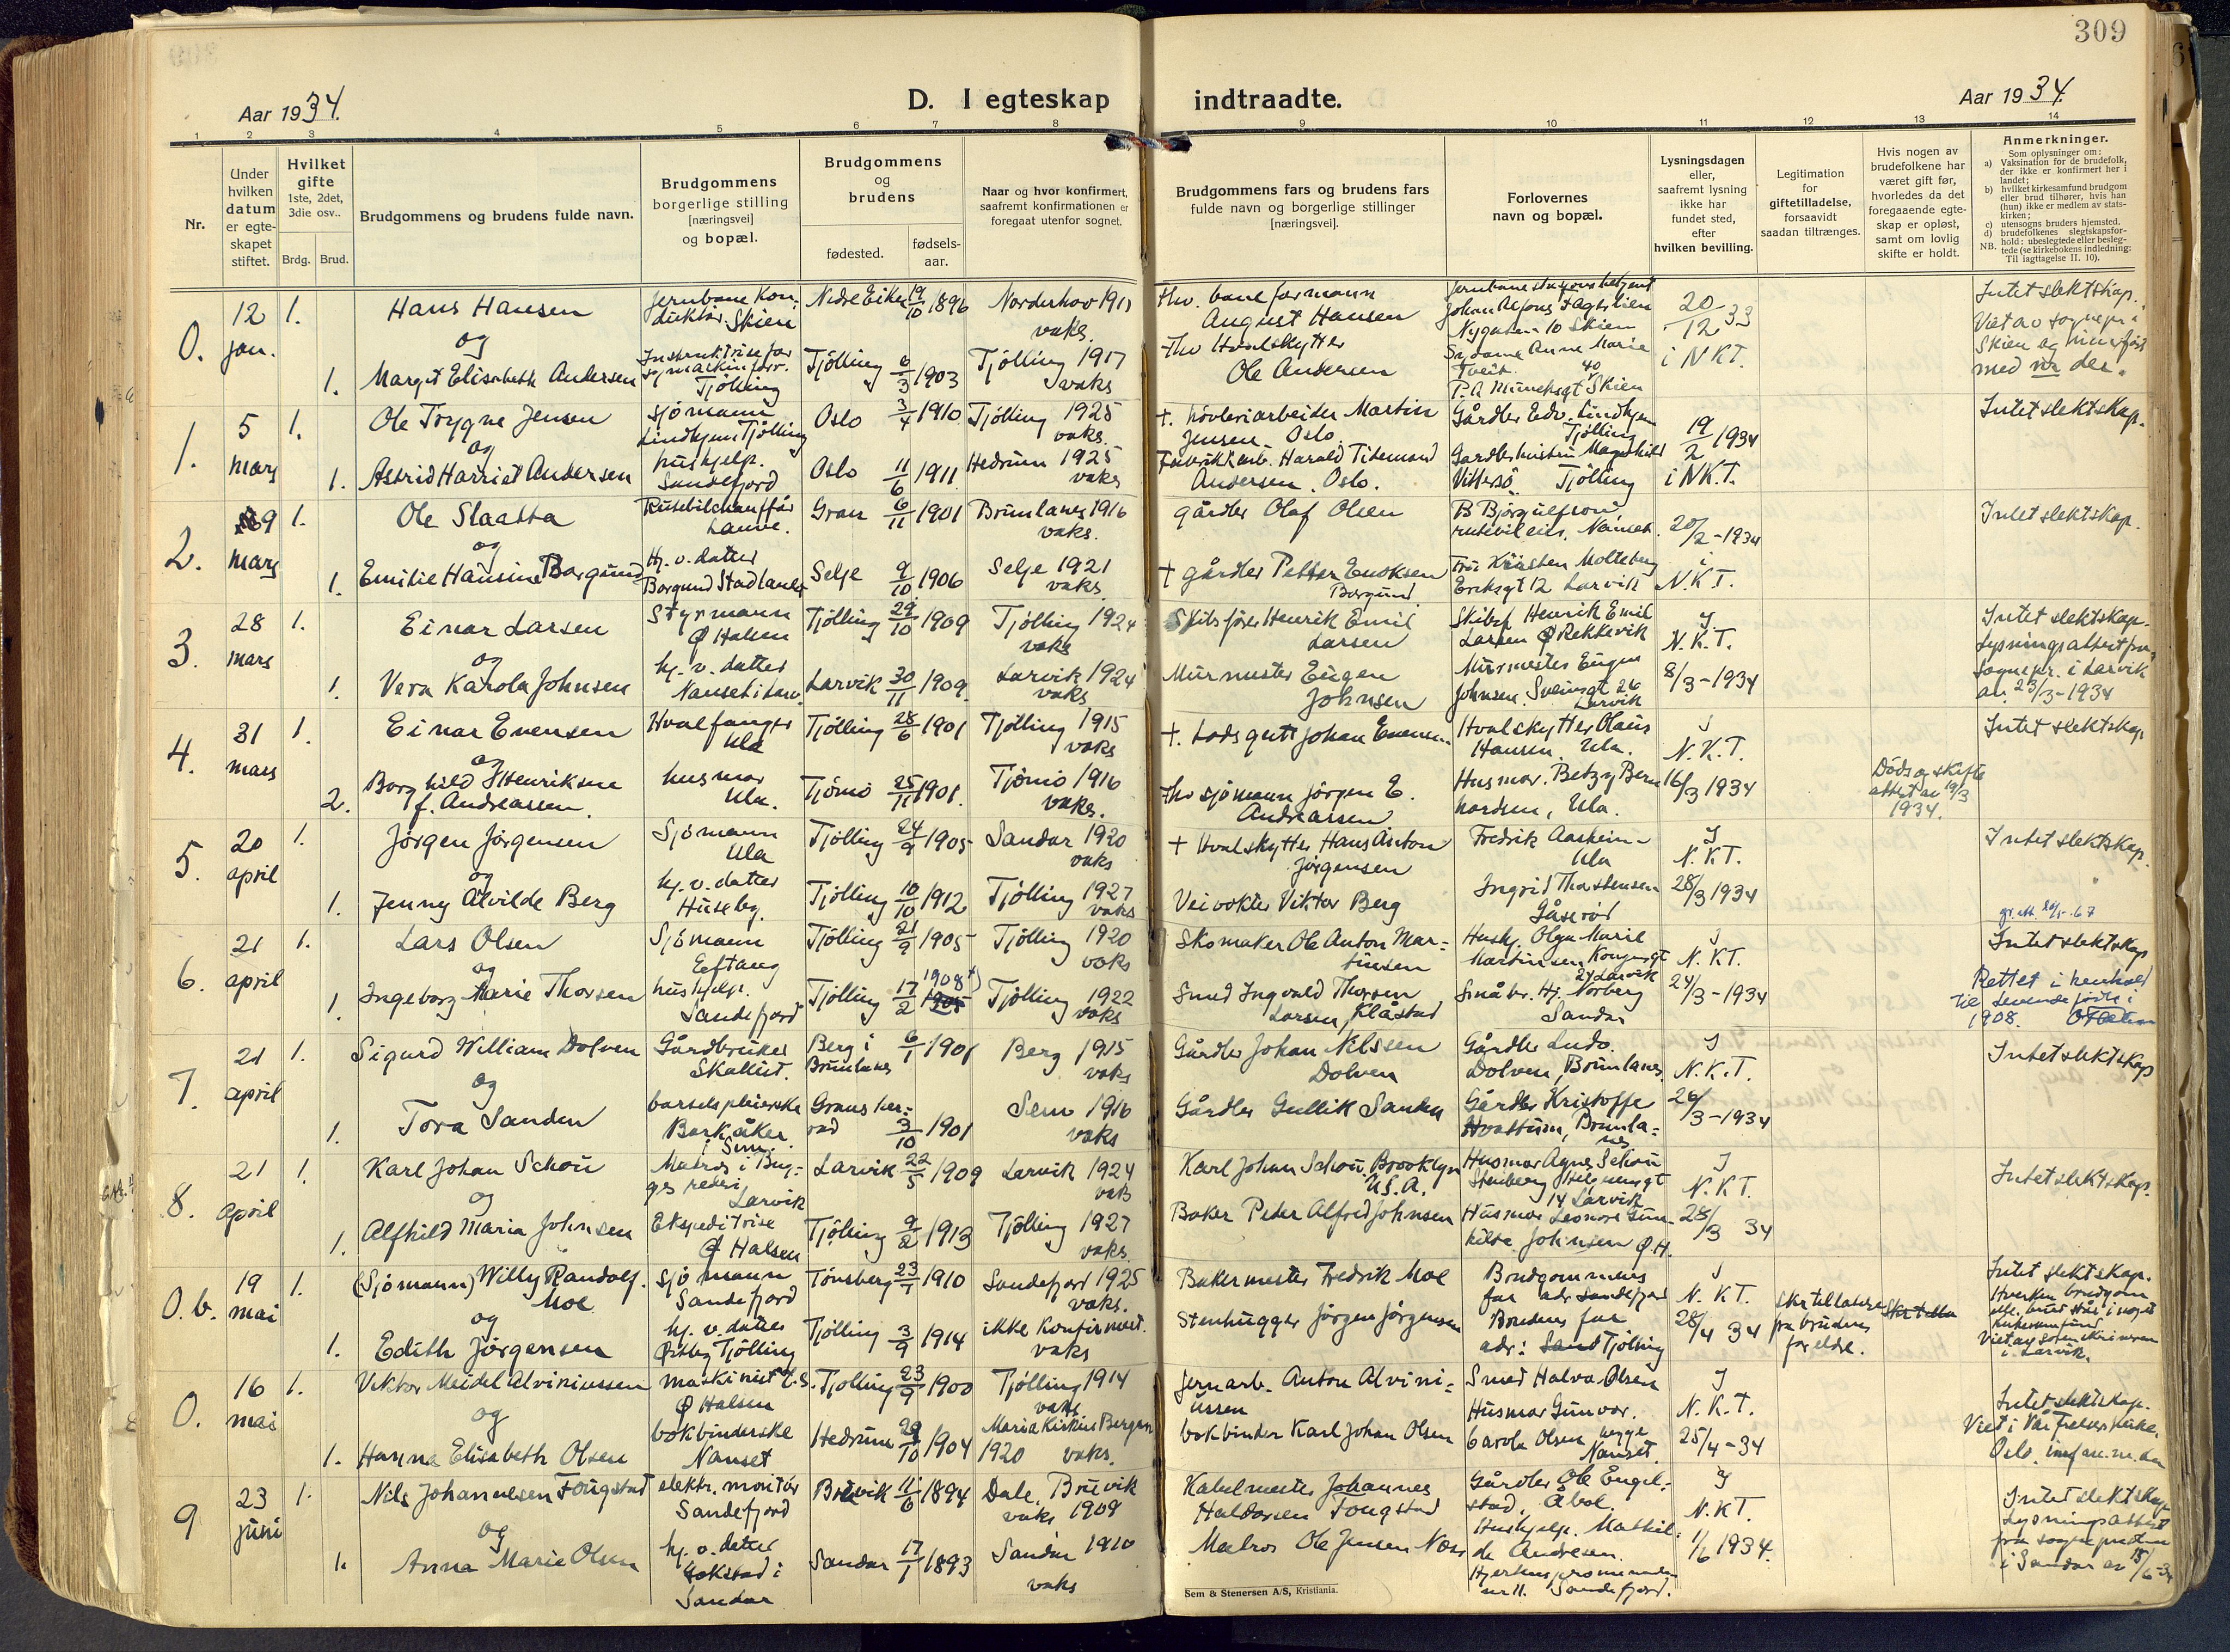 309
Aar 1934.
D. I egteskap indtraadte.
Aar 1934.
1 2 3 4 5 6 7 8 9 10 11 12 13 14
Nr.
Under hvilken datum er egteskapet stiftet.
Hvilket gifte
1ste, 2det, 3die osv..
Brdg. Brud.
Brudgommens og brudens fulde navn.
Brudgommens borgerlige stilling
[næringsvei]
og bopæl.
Brudgommens og brudens
fødested.
fødselsaar.
Naar og hvor konfirmert,
saafremt konfirmationen er
foregaat utenfor sognet.
Brudgommens fars og brudens fars
fulde navn og borgerlige stillinger
[næringsvei].
Forlovernes
navn og bopæl.
Lysningsdagen
eller,
saafremt lysning
ikke har
fundet sted,
efter
hvilken bevilling.
Legitimation
for
giftetilladelse,
forsaavidt
saadan tiltrænges.
Hvis nogen av
brudefolkene har
været gift før,
hvorledes da det
foregaaende egte-
skap er opløst,
samt om lovlig
skifte er holdt.
Anmerkninger.
Som oplysninger om:
a) Vaksination for de brudefolk,
der ikke er konfirmert her i
landet;
b) hvilket kirkesamfund brudgom
eller brud tilhører, hvis han
(hun) ikke er medlem av stats-
kirken;
c) utensogns bruders hjemsted.
d) brudefolkenes slegtskapsfor-
hold: ubeslegtede eller besleg-
tede (se kirkebokens indledning:
NB. Til iagttagelse II. 10).
0. 12 jan. 1. Hans Hansen
og
Jernbane Kon-
duktør. Skien
Nedre Eiker 19/10 1896 Norderhov 1911
vaks.
Fhv. baneformann
August Hansen
Johan Alfons
Nygaten 10 Skien
20/12 33
i N.K.T.
Intet slektskap.
Viet av sognepr. i
Skien og
med
1. Margit Elisabeth Andersen
Tjølling
Tjølling 6/3 1903 Tjølling 1917
vaks
Fhv Hvalskytter
Ole Andersen
Anne Marie
Tveit.
P.A. Munchsgt 40 Skien
1. 5 mars 1. Ole Trygve Jensen
og
sjømann
Lindhjem Tjølling
Oslo 3/4 1910 Tjølling 1925
vaks.
+. høvleriarbeider Martin
Jensen - Oslo.
Gårdbr Edv. Lindhjem
Tjølling
19/2 1934
i N.K.T.
Intet slektskap.
1. Astrid Harriet Andersen
hushjelp.
Sandefjord
Oslo 11/6 1911 Hedrum 1925
vaks
Fabrikkarb. Harald Tidemand
Andersen. Oslo.
Gardbrhustru Magnhild
Vittersø Tjølling
2. 9 mars 1. Ole Slaatta
og
Rutebilchauffør
Laurve.
Gran 6/11 1901 Brunlanes 1916
vaks.
gårdbr Olaf Olsen
B Bjørgulfson
rutebileier, Nanset.
20/2 - 1934
i
N.K.T.
Intet slektskap.
1. Emilie Hansine Borgund
Hj. v. datter
Borgund Stadlandet
Selje 9/10 1906 Selje 1921
vaks.
+ gårdbr Petter Enoksen
Borgund
Fru Kirsten Molteberg
Eriksgt 12 Larvik
3. 28 mars 1. Einar Larsen
og
Styrmann
Ø Halsen
Tjølling 29/10 1909 Tjølling 1924
vaks
Skibsfører Henrik Emil
Larsen
Skibsf Henrik Emil
Larsen Ø Rekkevik
I
N.K.T.
8/3 - 1934
Intet slektskap.
Lysningsattest fra
sognepr. i Larvik
av 23/3 - 1934
1. Vera Karola Johnsen
hj. v. datter
Nanset i Larv.
Larvik 30/11 1909. Larvik 1924
vaks
Murmester Eugen
Johnsen
Murmester Eugen
Johnsen. Sveinsgt 26
Larvik
4. 31 mars 1. Einar Evensen
og
Hvalfanger
Ula
Tjølling 28/6 1901 Tjølling 1915
vaks
+. Losgutt Johan Evensen
Hvalskytter Olaus
Hansen, Ula.
I
N.K.T.
16/3 1934
Intet slektskap
2. Borghild Henriksen
f. Andreassen.
husmor
Ula.
Tjømø 25/11 1901. Tjømø 1916
vaks.
Fhv sjømann Jørgen E.
Andreassen
Husmor. Betzy Bern-
hardsen, Ula.
Døds og skifte
attest av 19/3
1934.
5. 20 april 1. Jørgen Jørgensen
og
Sjømann
Ula
Tjølling 24/9 1905 Sandar 1920
vaks
+ Hvalskytter Hans Anton
Jørgensen
Fredrik Aasheim-
Ula
I
N.K.T.
28/3 1934
Intet slektskap.
1. Jenny Alvilde Berg
hj. v. datter
Huseby.
Tjølling 10/10 1912 Tjølling 1927
vaks
Veivokter Viktor Berg
Ingrid Thorstensen
Gåserød
6. 21 april 1. Lars Olsen
og
Sjømann
Eftang
Tjølling 21/9 1905 Tjølling 1920
vaks
Skomaker Ole Anton Mar-
tinsen
Hushj. Olga Marie
Martinsen Kongensgt
24 Larvik
I
N.K.T.
24/3 - 1934
Intet slektskap
Rettet i henhold
til levende fødte i
1908.
1. Ingeborg Marie Thorsen
hushjelp.
Sandefjord
Tjølling 17/2 1908 +) Tjølling 1922
vaks
Smed Ingvald Thorsen
Larsen, Klåstad
Småbr. Hj. Norberg
Sandar
7. 21 april 1. Sigurd William Dolven
og
Gårdbruker
Skallist.
Berg i
Brunlanes
6/1 1901 Berg 1915
vaks
Gårdbr Johan Nilssen
Dolven
Gårdbr Ludv.
Dolven, Brunlanes.
I
N.K.T.
26/3 - 1934
Intet slektskap
1. Tora Sanden
barselspleierske
Barkåker
i Sem.
Grans her-
red 3/10 1901 Sem 1916
vaks
Gårdbr Gullik Sanden
Gårdbr Kristoffe
Brunla-
nes
8. 21 april 1. Karl Johan Schou
og
Matros i Bug-
ges rederi
Larvik
Larvik 22/5 1909 Larvik 1924
vaks
Karl Johan Schou. Brooklyn
U.S.A.
Husmor Agnes Schou
Stenberg
14 Larvik
I
N.K.T.
28/3 34
Intet slektskap.
1. Alfhild Maria Johnsen
Ekspeditrise
Ø Halsen
Tjølling 9/2 1913 Tjølling 1927
vaks.
Baker Peder Alfred Johnsen
Husmor Leonore Gun-
hilda Johnsen Ø.H.
0.b. 19 mai 1. (Sjømann) Willy Randolf.
Moe
og
Sjømann
Sandefjord
Tønsberg 23/7 1910 Sandefjord 1925
vaks.
Bakermester Fredrik Moe
Brudgommens
far adr Sandefjord
I
N.K.T.
28/4 34
Skr tillatelse
fra brudens
foreldre.
Intet slektskap.
Hverken brudgom
elle. brud står i noget
kirkesamfund
Viet av Sorenskriveren
i Larvik.
1. Edith Jørgensen
hj. v. datter
Østby Tjølling
Tjølling 3/9 1914 ikke konfirmert.
vaks
Stenhugger Jørgen Jørgensen
Brudens far
adr: Tjølling
0. 16 mai 1. Viktor Meidel Alviniussen
og
maskinist
Ø Halsen
Tjølling 23/9 1900 Tjølling 1914
vaks
Jernarb. Anton Alvini-
ussen
Smed Halvor Olsen
Husmor Gunvor.
I
N.K.T.
25/4 - 34
Intet slektskap.
Viet i Vår Frelsers kirke,
Oslo.
1. Hanna Elisabeth Olsen
bokbinderske
Nanset
Hedrum 29/10 1904 Maria Kirkius Bergen
1920 vaks.
bokbinder Karl Johan Olsen
Carola Olsen begge
Nanset.
9 23 juni 1. Nils Johannesen Fougstad
og
elektr. montør
Sandefjord
Bruvik 11/6 1894 Dale, Bruvik
vaks 1909
Kabelmester Johannes
Haldorsen Fougstad
Gårdbr Ole Engel-
stad,
I
N.K.T.
1/6 1934.
Intet slektskap
Lysningsattest
fra sognepresten
i Sandar av 15/6-34
1. Anna Marie Olsen
hj. v. datter
Gokstad i
Sandar
Sandar 17/1 1893 Sandar 1910
vaks
Matros Ole Jensen Næs
Hushjelp. Mathil-
de Andresen.
Hjertnespromenaden
nr 11. Sandefjord.
Sem & Stenersen A/S, Kristiania.